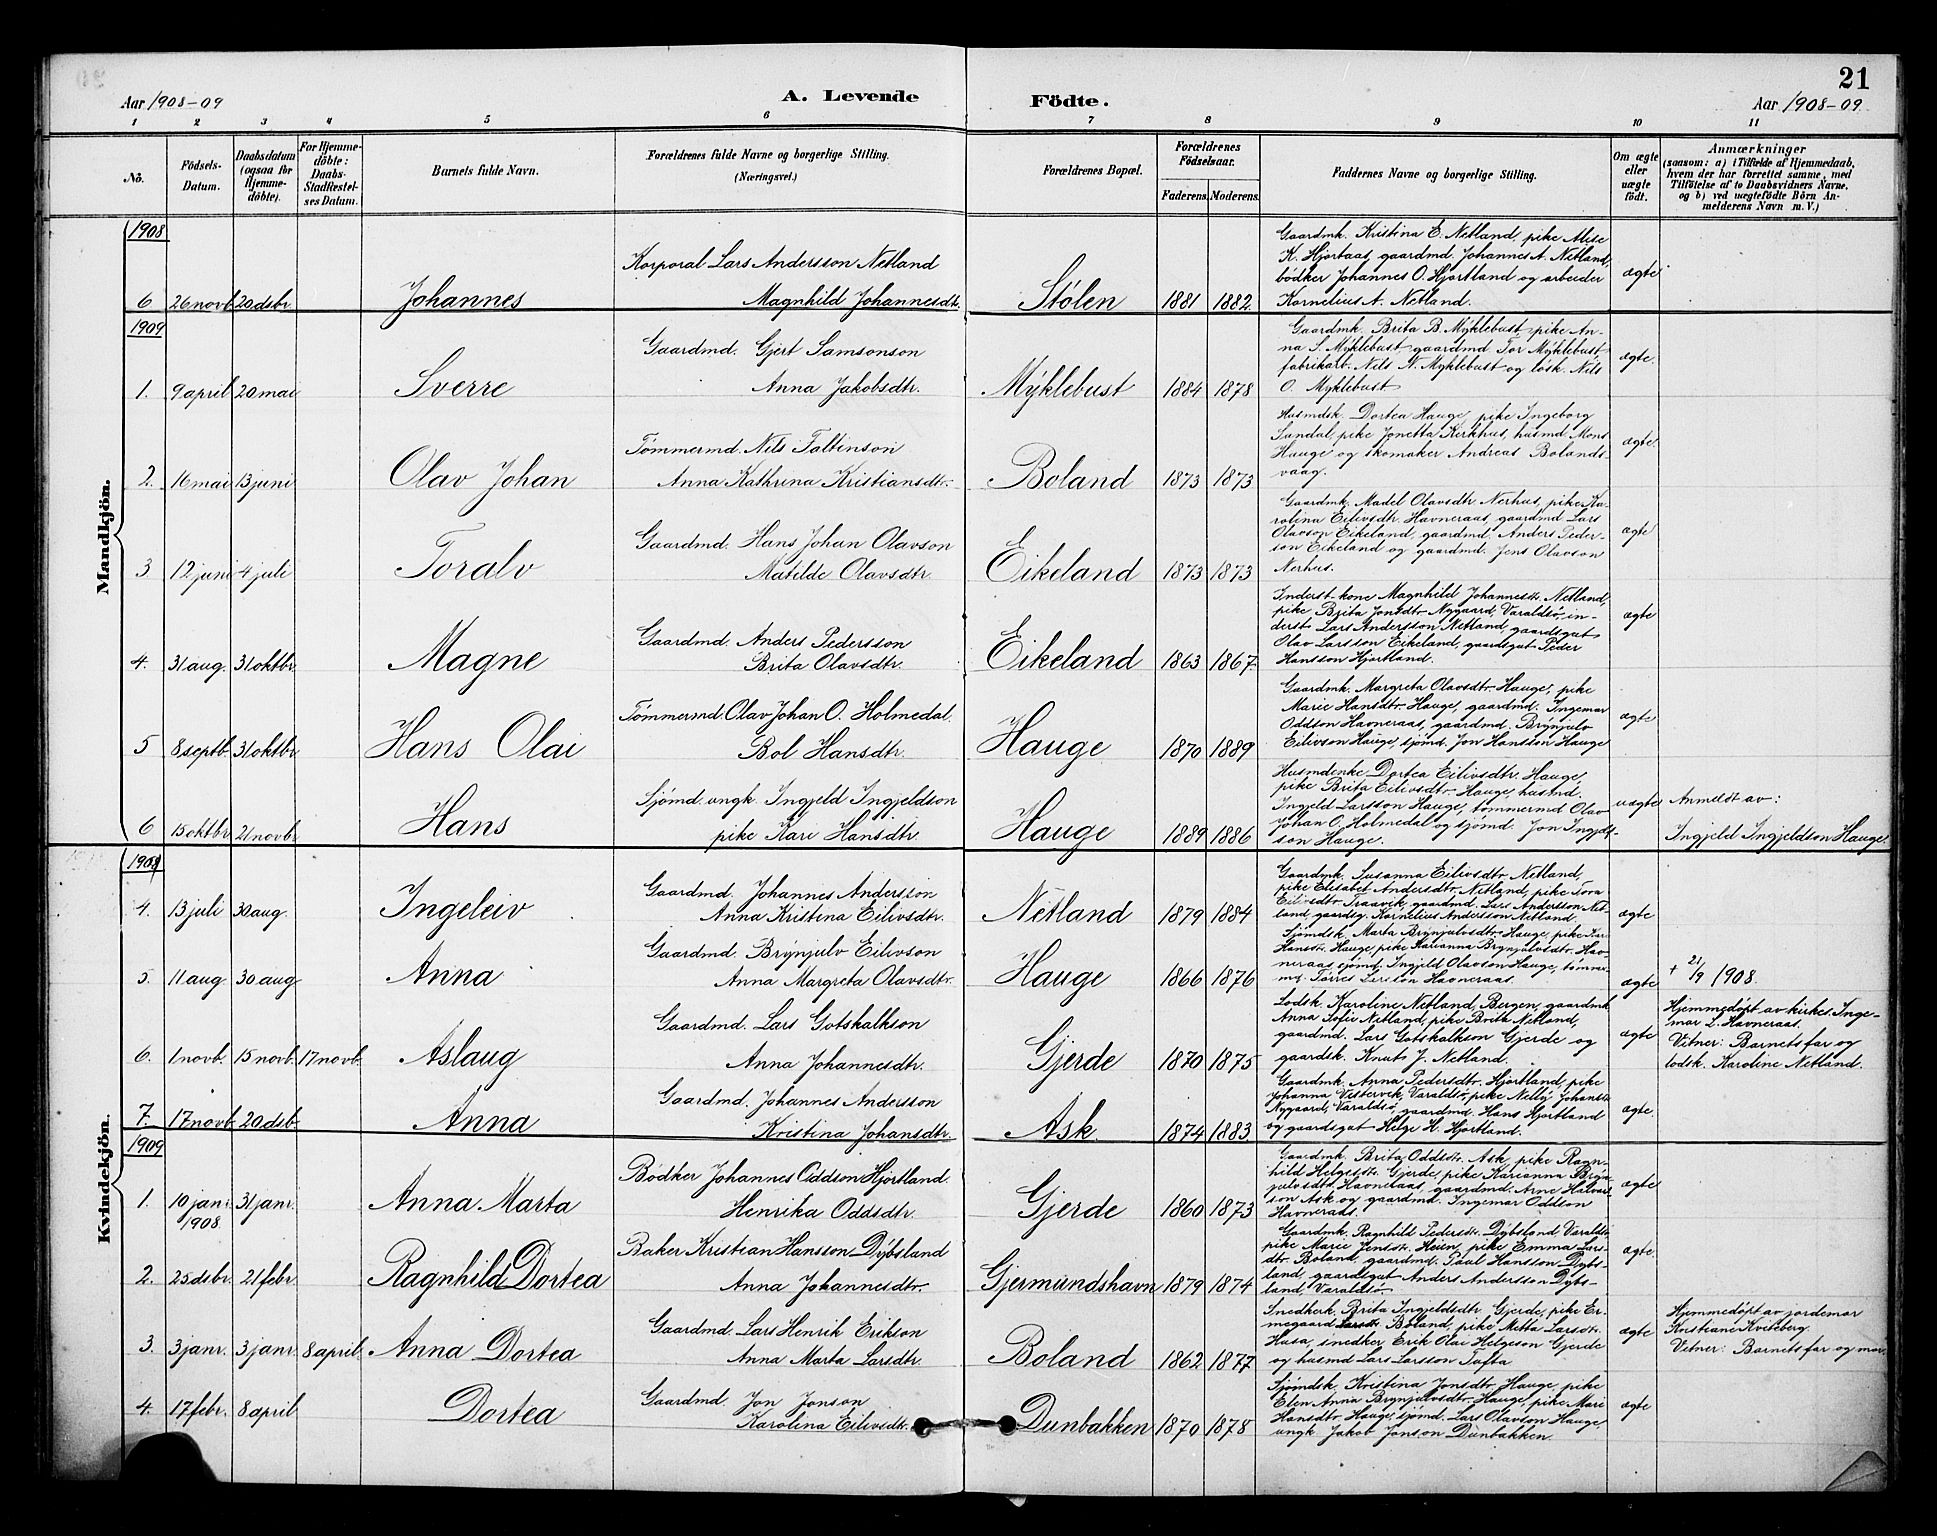 21
Aar 1908-09
A. Levende
Födte.
Aar 1908-09.
1 2 3 4 5 6 7 8 9 10 11
No.
Födsels-Datum.
Daabsdatum (ogsaa for Hjemme-döbte).
For Hjemme-döbte: Daabs-Stadfæstel-ses Datum.
Barnets fulde Navn.
Forældrenes fulde Navne og borgerlige Stilling. (Næringsvei.)
Forældrenes Bopæl.
Forældrenes Födselsaar.
Faderens. Moderens.
Faddernes Navne og borgerlige Stilling.
Om ægte eller uægte födt.
Anmærkninger
(saasom: a) i Tilfælde af Hjemmedaab, hvem der har forrettet samme, med Tilföielse af to Daabsvidners Navne, og b) ved uægtefödte Börn An-melderens Navn m. V.)
Mandkjön.
1908
Korporal Lars Andersson Netland
6 26 novb. 20 dsbr. Johannes Magnhild Johannesdtr. Stölen 1881 1882
Gaardmk. Kristina E. Netland, pike Alise
K. Hjortaas, gaardmd Johannes A. Netland,
bödker Johannes O. Hjortland og arbeider
Kornelius A. Netland.
ægte
1909
Gaardmd. Gjert Samsonson
1. 9 april 20 mai Sverre Anna Jakobsdtr. Myklebust 1884 1878
Gaardmk. Brita B. Myklebust, pike An-
na S. Myklebust, gaardmd Tor Myklebust
fabrikarb. Nils N. Myklebust og lösk. Nils
O. Myklebust
ægte.
Tömmermd. Nils Taltinson
2. 16 mai 13 juni Olav Johan Anna Kathrina Kristiansdtr. Boland 1873 1873
Husmdsk. Dortea Hauge, pike Ingeborg
Sundal, pike Jonetta Kirkhus, husmd Mons
Hauge og skomaker Andreas Bolands-
vaag.
ægte
Gaardmd. Hans Johan Olavson
3 12 juni 4 juli Toralv Matilde Olavsdtr. Eikeland 1873 1873
Gaardmk. Madel Olavsdtr. Nerhus, pike Ka-
rolina Eilivsdtr. Havneraas, gaardmd Lars
Olavson Eikeland, gaardmd. Anders Peder-
son Eikeland og gaardmd. Jens Olavson
Nerhus.
ægte
Gaardmd. Anders Pedersson
4. 31 aug. 31 oktbr Magne Brita Olavsdtr. Eikeland 1863 1867
Inderst-kone Magnhild Johannesdtr. Netland,
pike Brita Jonsdtr. Nygaard, Varaldsö, in-
derst Lars Andersson Netland, gaardsgut
Olav Larsson Eikeland, gaardsgut Peder
Hansson Hjortland.
ægte
Tömmermd Olav Johan O. Holmedal.
5 8 septb. 31 oktbr Hans Olai Bol Hansdtr. Hauge 1870 1889
Gaardmk. Margreta Olavsdtr. Hauge, pike
Marie Hansdtr. Hauge, gaardmd. Ingemar
Oddson Havneraas, gaardmd. Brynjulv
Eilivson Hauge, sjömd. Jon Hansson Hauge
ægte
Sjömd. ungk. Ingjeld Ingjeldson
6 15 oktbr 21 novbr Hans pike Kari Hansdtr. Hauge 1889 1886
Husmdenke Dortea Eilivsdtr. Hauge,
pike Brita Eilivsdtr. Hauge, husmd.
Ingjeld Larsson Hauge, tömmermd Olav
Johan O. Holmedal og sjömd. Jon Ingjeld-
son Hauge.
uægte
Anmeldt av:
Ingjeld Ingjeldson Hauge.
Kvindekjön.
1908
Gaardmd. Johannes Andersson
4. 13 juli 30 aug. Ingeleiv Anna Kristina Eilivsdtr. Netland 1879 1884
Gaardmk. Susanna Eilivsdtr Netland,
pike Elisabet Andersdtr. Netland, pike Tora
Eilivsdtr Traavik, gaardmd. Lars Andersson Net-
land, gaardsg. Kornelius Andersson Netland.
ægte
Gaardmd. Brynjulv Eilivson
5. 11 aug 30 aug Anna Anna Margreta Olavsdtr. Hauge 1866 1876
Sjömdsk. Marta Brynjulvsdtr. Hauge, pike Kari
Hansdtr. Hauge, pike Karianna Brynjulvsdtr. Hav-
neraas, sjömd. Ingjeld Olavson Hauge, tömmer-
md. Torres Larsson Havneraas.
ægte
+ 21/9 1908.
Gaardmd. Lars Gotskalkson
6. 1 novb. 15 novb. 17 novb. Aslaug Anna Johannesdtr. Gjerde 1870 1875
Lodsk. Karoline Netland, Bergen, gaardmk
Anna Sofie Netland, pike Brita Netland,
gaardmd. Lars Gotskalkson Gjerde og
gaardsk. Knut J. Netland.
ægte
Hjemmedöpt av kirkes. Inge-
mar L. Havneraas.
Vitner: Barnets far og
lodsk. Karoline Netland.
Gaardmd. Johannes Andersson
7. 17 novb. 20 dsb. Anna Kristina Johansdtr. Ask 1874 1883
Gaardmk. Anna Pedersdtr. Hjortland, pike
Johanna Vestervik, Varaldsö, pike Nelly Johansdtr.
Nygaard, Varaldsö, gaardmd. Hans Hjortland
og gaardsgut Helge H. Hjortland.
ægte
1909
Bödker Johannes Oddson Hjortland.
1. 10 janr. 1908. 31 janr. Anna Marta Henrika Oddsdtr. Gjerde 1860 1873
Gaardmk. Brita Oddsdtr. Ask, pike Ragn-
hild Helgesdtr. Gjerde, pike Karianna Bryn-
julvsdtr. Havneraas, gaardmd. Arne Halvor-
son Ask og gaardmd. Ingemar Oddson
Havneraas.
ægte
Baker Kristian Hansson Dybsland
2. 25 dsbr. 21 febr Ragnhild Dortea Anna Johannesdtr. Gjermundshavn 1879 1874
Gaardmk. Ragnhild Pedersdtr. Dybsland Varaldsö
pike Marie Jensdtr. Heien, pike Emma Lars-
dtr. Boland, gaardmd. Paul Hansson Dybs-
land, gaardsgut Anders Andersson Dybs-
land, Varaldsö
ægte.
Gaardmd. Lars Henrik Erikson
3. 3 janr. 3 janr. 8 april. Anna Dortea Anna Marta Larsdtr. Boland 1862 1877
Snedkerk. Brita Ingjeldsdtr Gjerde, pike Er-
megaard Larsdtr. Boland, pike Metta Larsdtr.
Husa, snedker Erik Olai Helgeson Gjerde
og husmd Lars Larsson Tofta
ægte
Hjemmedöpt av jordemor
Kristiane Kviteberg.
Vitner: Barnets far og mor.
Gaardmd. Jon Jonson
4. 17 febr. 8 april Dortea Karolina Eilivsdtr. Dunbakken 1870 1878
Sjömdsk. Kristina Jonsdtr Hauge, pike
Elen Anna Brynjulvsdtr. Hauge, pike Mari
Hansdtr. Hauge, sjömd. Lars Olavson Hauge,
ungk. Jakob Jonson Dunbakken.
ægte